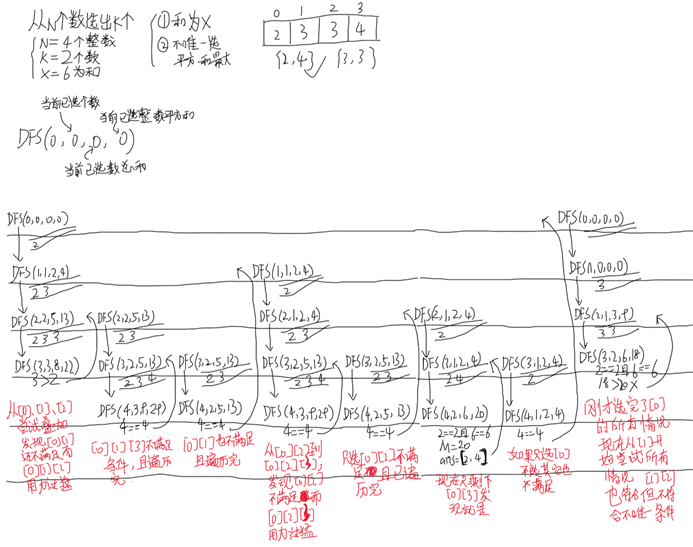 从N个数选出K个
N=4个整数
K=2个数
X=6为和
①和为X
②不唯一选
平方和最大
0 1 2 3
2 3 3 4
{2,4} {3,3}
当前已选个数
当前已选整数平方和
DFS(0,0,0,0)
当前已选数总和
DFS(0,0,0,0)
2
DFS(0,0,0,0)
DFS(1,1,2,4)
2 3
DFS(1,1,2,4)
2
DFS(1,0,0,0)
3
DFS(2,2,5,13)
2 3 3
DFS(2,2,5,13)
2 3 3
DFS(2,1,2,4)
2 3
DFS(2,1,2,4)
2
DFS(2,1,3,9)
3 3
DFS(3,3,8,22)
3>2
DFS(3,2,5,13)
2 3 4
DFS(3,2,5,13)
2 3
DFS(3,2,5,13)
2 3 4
DFS(3,2,5,13)
2 3
DFS(3,1,2,4)
2 4
DFS(3,1,2,4)
2
DFS(3,2,6,18)
2==2且6==6
18>20 X
DFS(4,3,9,29)
4==4
DFS(4,2,5,13)
4==4
DFS(4,3,9,29)
4==4
DFS(4,2,5,13)
4==4
DFS(4,2,6,20)
2==2且6==6
M=20
ans=[2,4]
DFS(4,1,2,4)
4==4
从[0],[1],[2]
尝试叠加
发现[0][1]
还不满足而
[0][1][2]
用力过猛
[0][1][3]不满足
条件,且遍历
完
[0][1]也不满足
且遍历完
从[0][2]到
[0][2][3],
发现[0][2]
不满足而
[0][2][3]
用力过猛
只选[0][2]不满
足且已遍
历完
现在只剩下
[0][3]发
现就是
如果只选[0]
不选其它也
不满足
刚才选完了[0]
的所有情况
现在从[1]开
始尝试所有
情况 [1][2]
也符合但不符
合不唯一条件